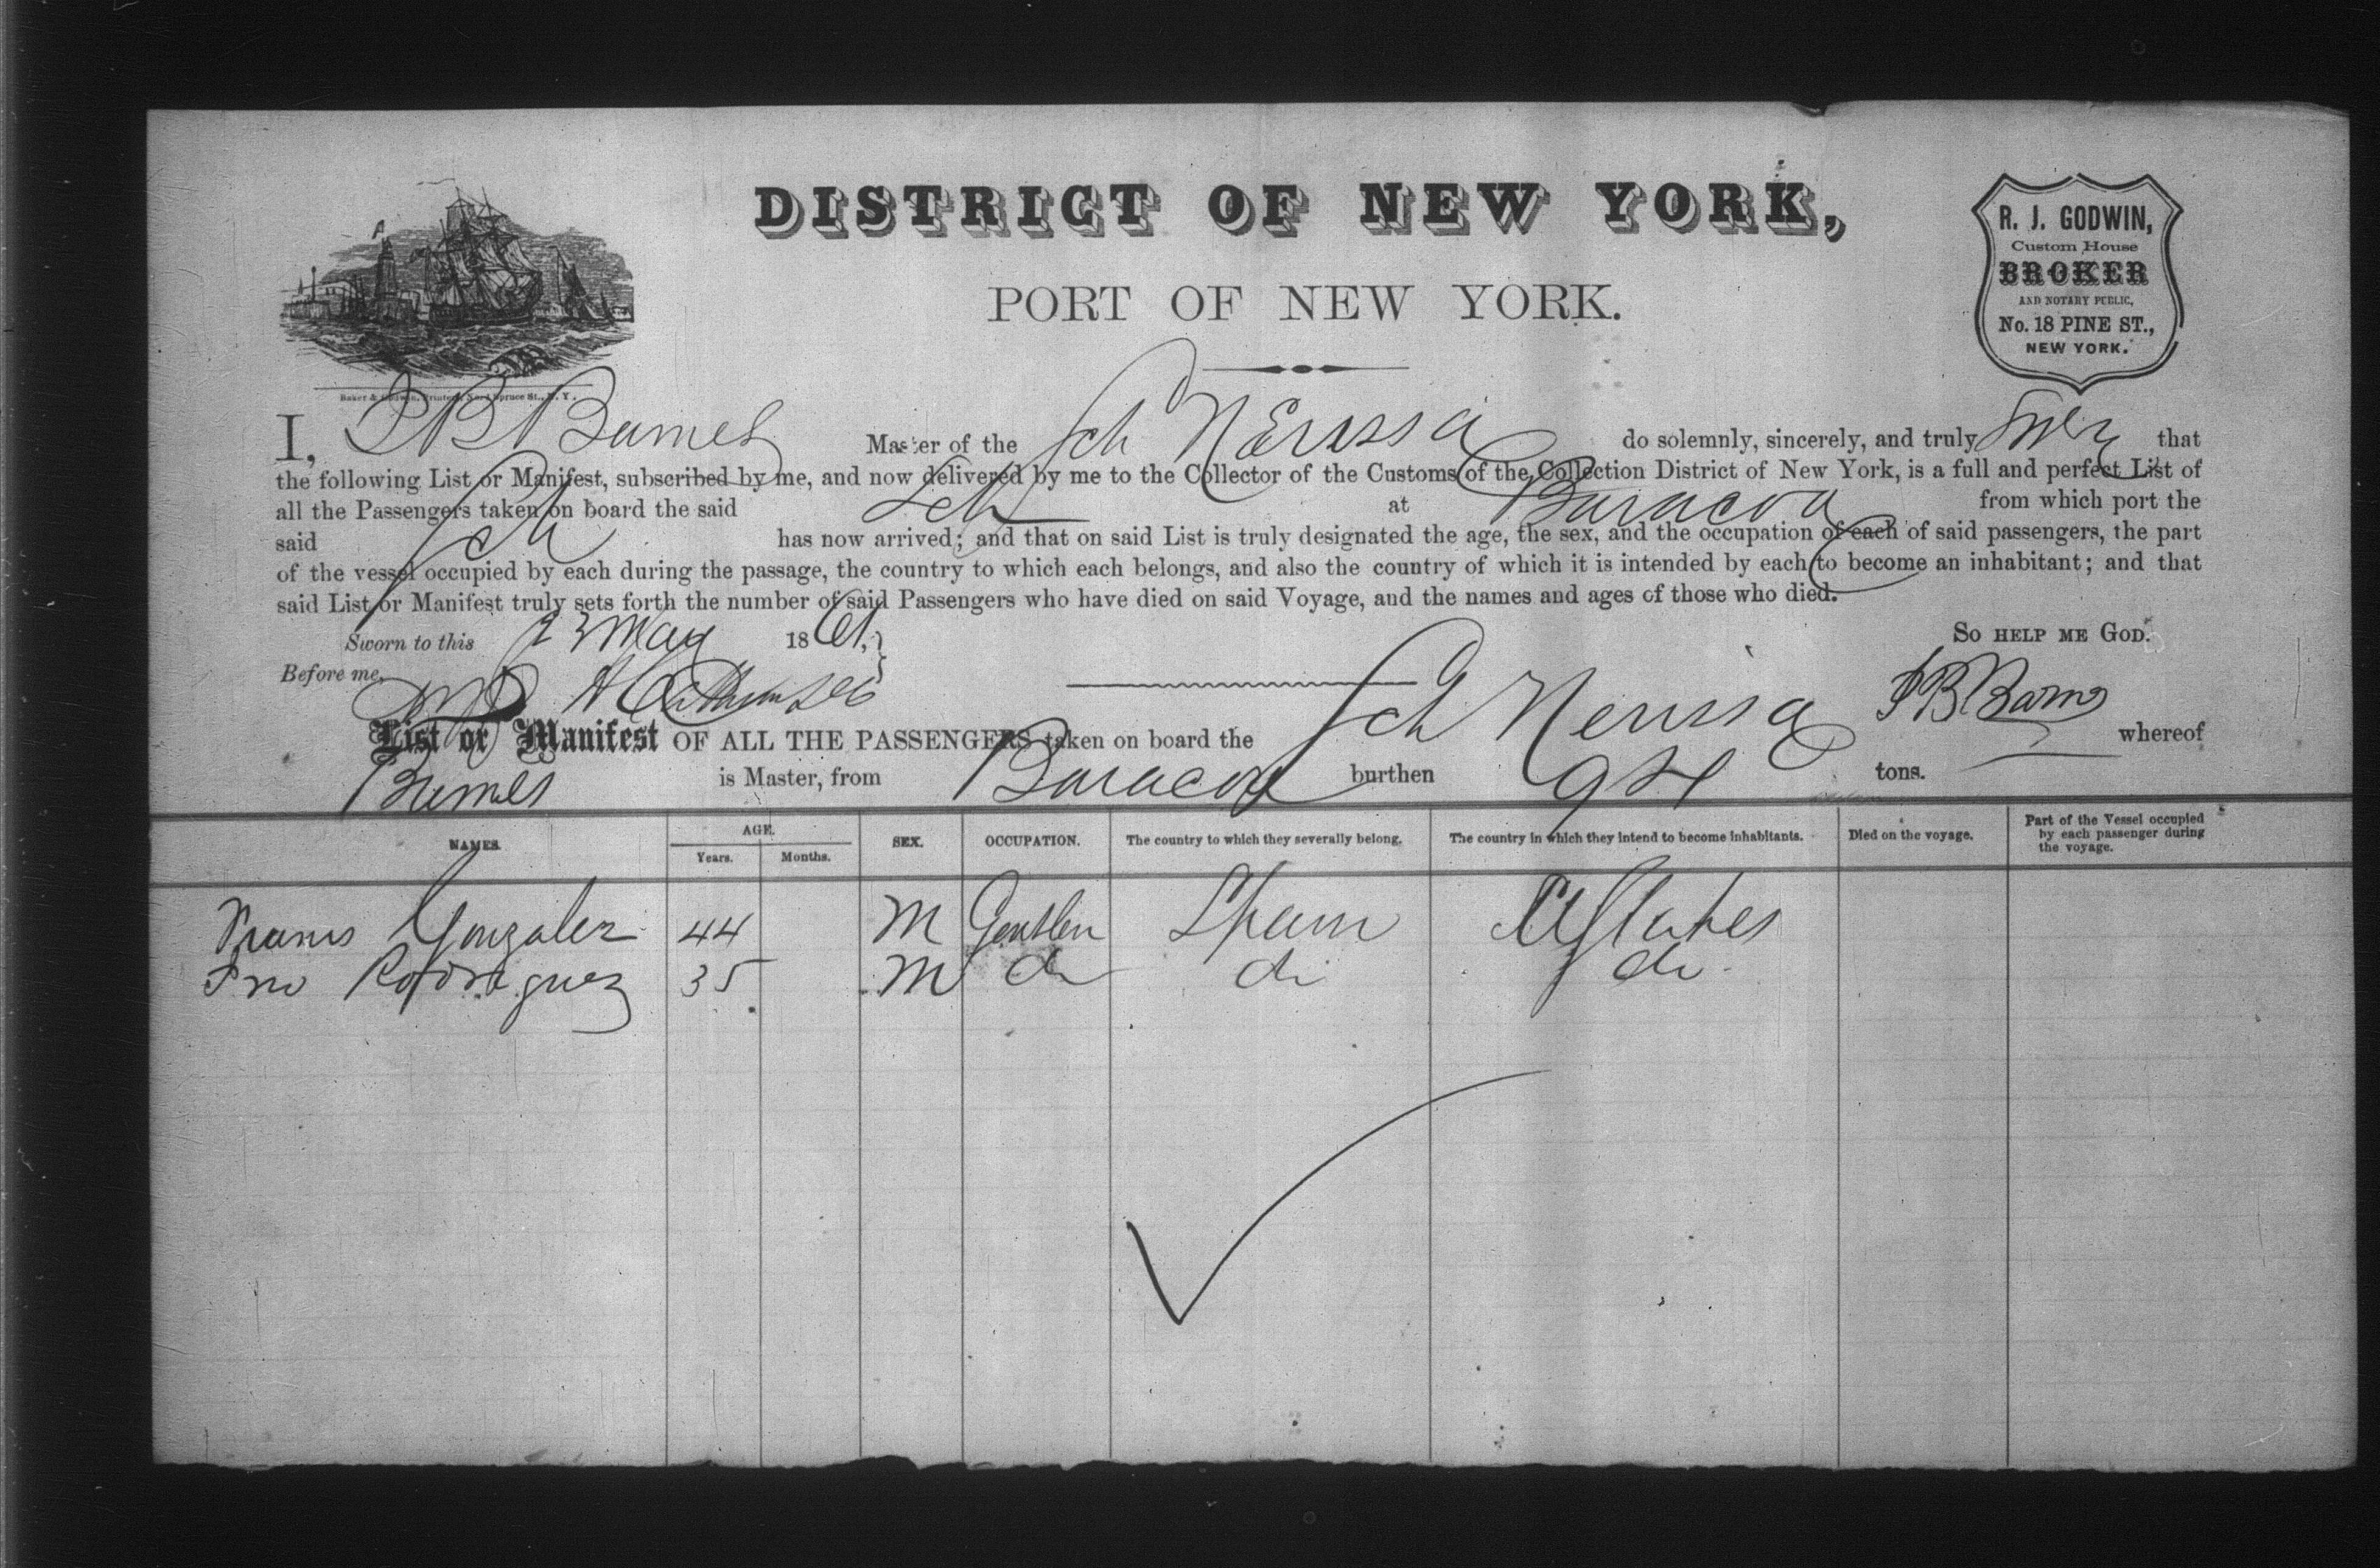 DISTRICT OF NEW YORK,
PORT OF NEW YORK.
R. J. GODWIN,
Custom House
BROKER
AND NOTARY PUBLIC,
No. 18 PINE ST.,
NEW YORK.
Baker & Godwin, Printers, No. 1 Spruce St., N. Y.
I, Master of the Sch Nerissa do solemnly, sincerely, and truly swear that
the following List or Manifest, subscribed by me, and now delivered by me to the Collector of the Customs of the Collection District of New York, is a full and perfect List of
all the Passengers taken on board the said Sch at Baracoa from which port the
said Sch has now arrived; and that on said List is truly designated the age, the sex, and the occupation of each of said passengers, the part
of the vessel occupied by each during the passage, the country to which each belongs, and also the country of which it is intended by each to become an inhabitant; and that
said List or Manifest truly sets forth the number of said Passengers who have died on said Voyage, and the names and ages of those who died.
Sworn to this 23 May 1861, So HELP ME GOD.
Before me,
List or Manifest OF ALL THE PASSENGERS taken on board the Sch Nerissa whereof
is Master, from Baracoa burthen tons.
NAMES. AGE. Years. Months. SEX. OCCUPATION. The country to which they severally belong. The country in which they intend to become inhabitants. Died on the voyage. Part of the Vessel occupied by each passenger during the voyage.
Gonzalez 44 M Gentlen Spain UStates
Rodriguez 35 M do do do